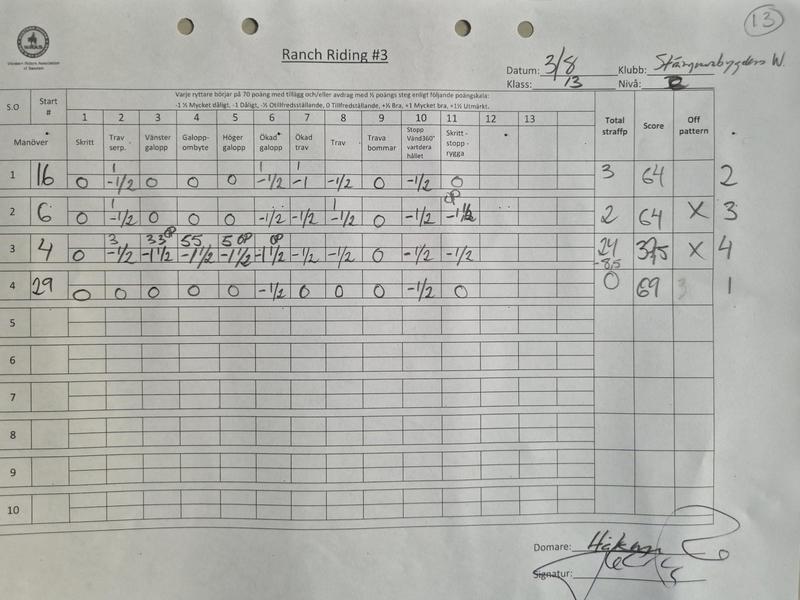 13
Western Riders Association
of Sweden
Ranch Riding #3
Datum: 3/8 Klubb: W.
Klass: 13 Nivå:
Varje ryttare börjar på 70 poäng med tillägg och/eller avdrag med ½ poängs steg enligt följande poängskala:
-1 ½ Mycket dåligt, -1 Dåligt, -½ Otillfredsställande, 0 Tillfredställande, +½ Bra, +1 Mycket bra, +1½ Utmärkt.
S.O Start # 1 2 3 4 5 6 7 8 9 10 11 12 13 Total straffp Score Off pattern
Manöver Skritt Trav serp. Vänster galopp Galopp-ombyte Höger galopp Ökad galopp Ökad trav Trav Trava bommar Stopp Vänd360° vartdera hållet Skritt - stopp - rygga
1 1 1
1 16 0 -1/2 0 0 0 -1/2 -1 -1/2 0 -1/2 0 3 64 2
1 1 OP
2 6 0 -1/2 0 0 0 -1/2 -1/2 -1/2 0 -1/2 -1 1/2 2 64 X 3
3 33 OP 55 5 OP OP
3 4 0 -1/2 -1 1/2 -1 1/2 -1 1/2 -1 1/2 -1/2 -1/2 0 -1/2 -1/2 24 -8,5 37,5 X 4
4 29 0 0 0 0 0 -1/2 0 0 0 -1/2 0 0 69 1
5
6
7
8
9
10
Domare: Håkan
Signatur: